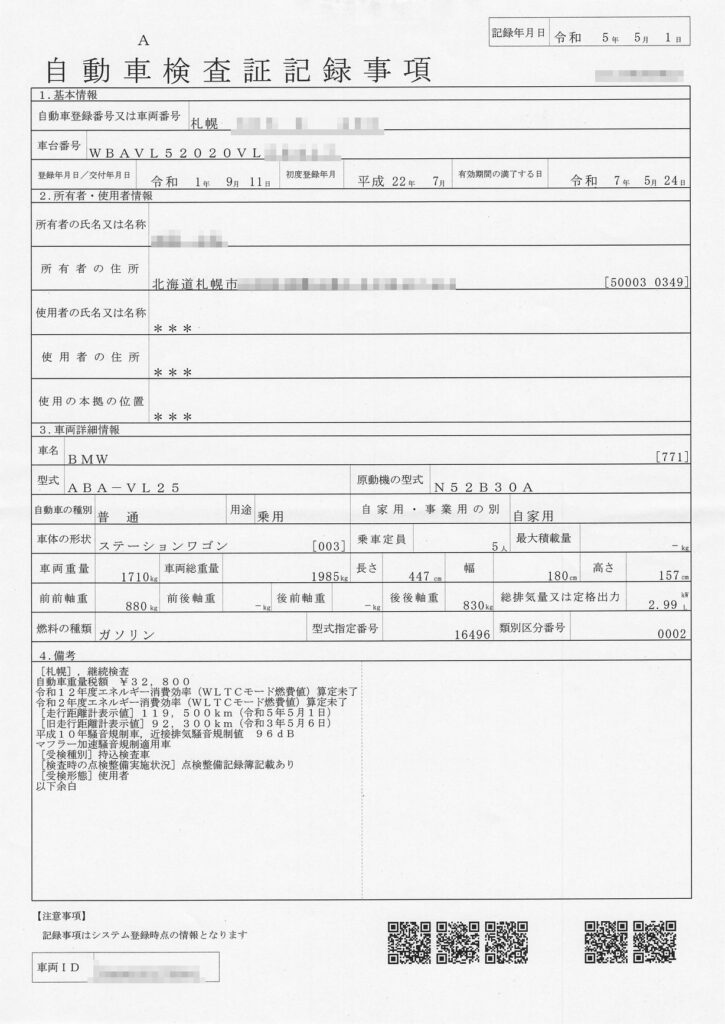 記録年月日 令和 5年 5月 1日
A
自動車検査証記録事項
1.基本情報
自動車登録番号又は車両番号 札幌
車台番号 WBAVL52020VL
登録年月日/交付年月日 令和 1年 9月 11日 初度登録年月 平成 22年 7月 有効期間の満了する日 令和 7年 5月 24日
2.所有者・使用者情報
所有者の氏名又は名称
所有者の住所 北海道札幌市 [50003 0349]
使用者の氏名又は名称 ***
使用者の住所 ***
使用の本拠の位置 ***
3.車両詳細情報
車名 BMW [771]
型式 ABA-VL25 原動機の型式 N52B30A
自動車の種別 普通 用途 乗用 自家用・事業用の別 自家用
車体の形状 ステーションワゴン [003] 乗車定員 5人 最大積載量 -kg
車両重量 1710kg 車両総重量 1985kg 長さ 447cm 幅 180cm 高さ 157cm
前前軸重 880kg 前後軸重 -kg 後前軸重 -kg 後後軸重 830kg 総排気量又は定格出力 2.99 kW L
燃料の種類 ガソリン 型式指定番号 16496 類別区分番号 0002
4.備考
[札幌],継続検査
自動車重量税額 ¥32,800
令和12年度エネルギー消費効率(WLTCモード燃費値)算定未了
令和2年度エネルギー消費効率(WLTCモード燃費値)算定未了
[走行距離計表示値]119,500km(令和5年5月1日)
[旧走行距離計表示値]92,300km(令和3年5月6日)
平成10年騒音規制車,近接排気騒音規制値 96dB
マフラー加速騒音規制適用車
[受検種別]持込検査車
[検査時の点検整備実施状況]点検整備記録簿記載あり
[受検形態]使用者
以下余白
【注意事項】
記録事項はシステム登録時点の情報となります
車両ID